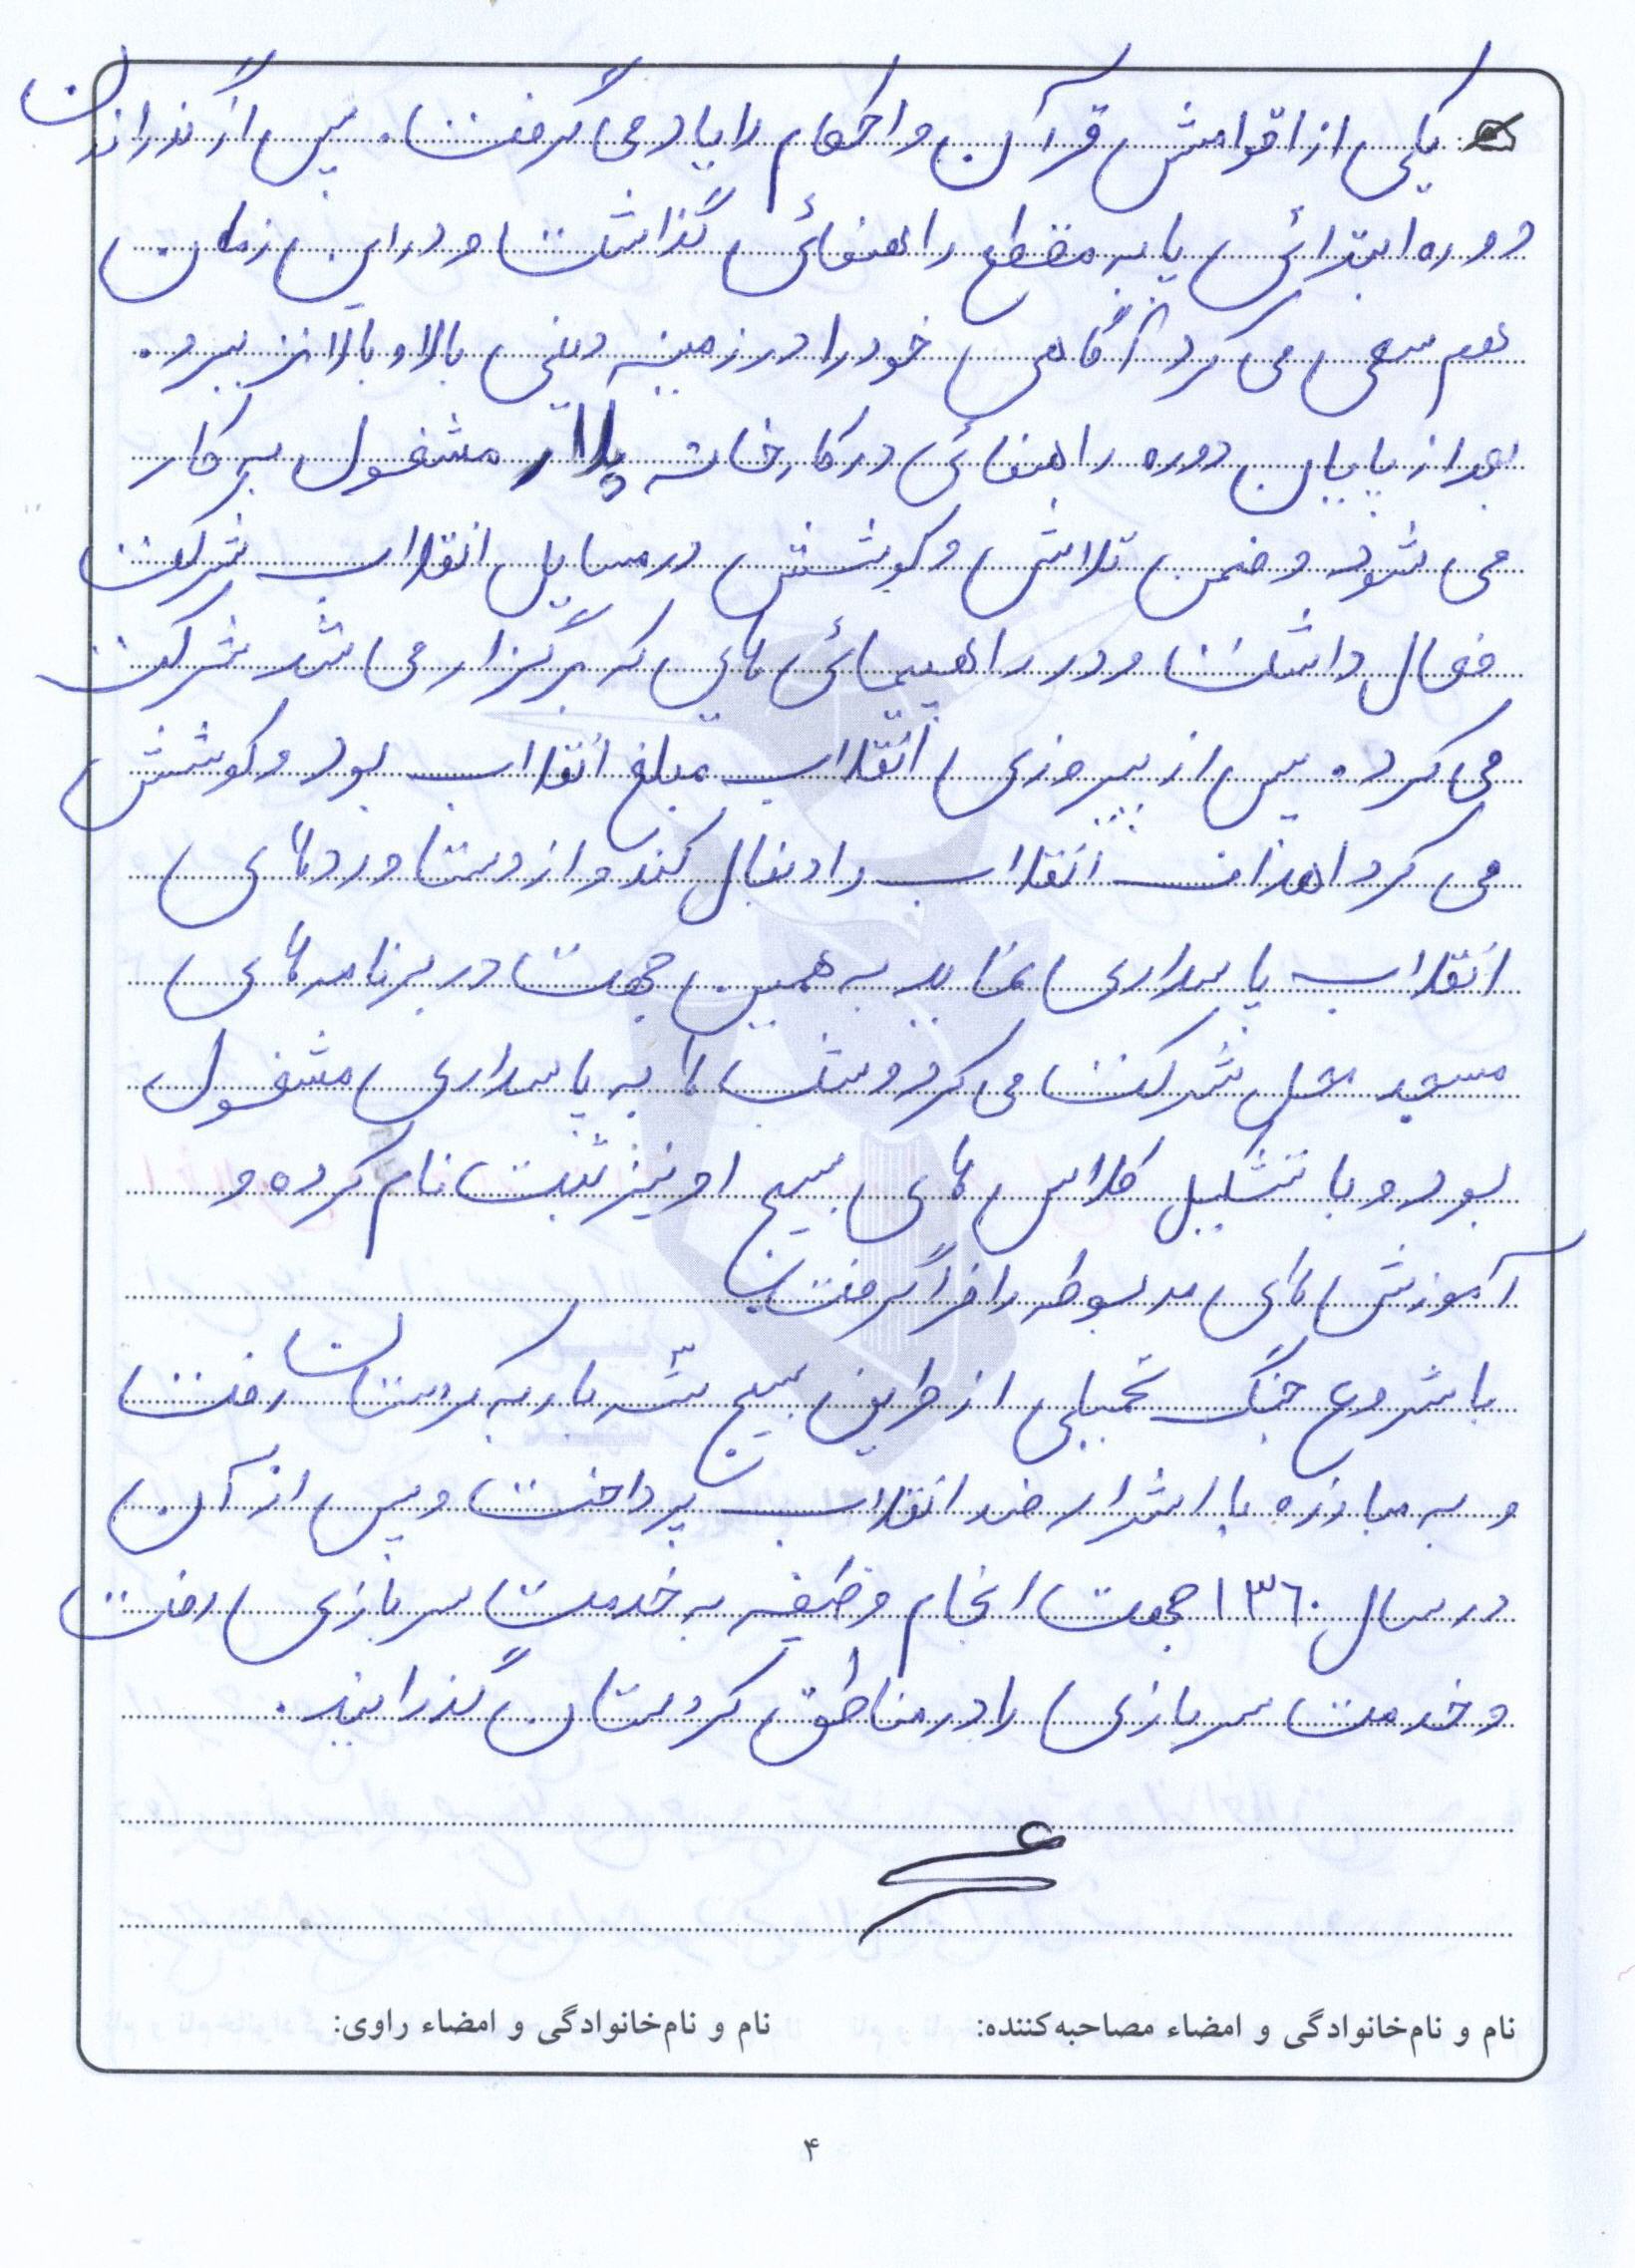 یکی از اقوامش قرآن و احکام را یاد می گرفت. پس از گذراندن
دوره ابتدائی پا به مقطع راهنمائی گذاشت و در این زمان
هم سعی می کرد آگاهی خود را در زمینه دینی بالا و بالاتر ببرد.
بعد از پایان دوره راهنمائی در کارخانه پلار مشغول به کار
می شود و ضمن تلاش و کوشش در مسایل انقلاب شرکت
فعال داشت و در راهپیمائی هایی که برگزار می شد شرکت
می کرد. پس از پیروزی انقلاب مبلغ انقلاب بود و کوشش
می کرد اهداف انقلاب را دنبال کند و از دستاوردهای
انقلاب پاسداری نماید به همین جهت در برنامه های
مسجد محل شرکت می کرد و شب ها به پاسداری مشغول
بود و با تشکیل کلاس های بسیج او نیز ثبت نام کرده و
آموزش های مربوطه را فرا گرفت
با شروع جنگ تحمیلی از طریق بسیج سه بار به کردستان رفت
و به مبارزه با اشرار ضد انقلاب پرداخت و پس از آن
در سال ۱۳۶۰ جهت انجام وظیفه به خدمت سربازی رفت
و خدمت سربازی را در مناطق کردستان گذرانید.
نام و نام‌خانوادگی و امضاء مصاحبه‌کننده: نام و نام‌خانوادگی و امضاء راوی:
۴